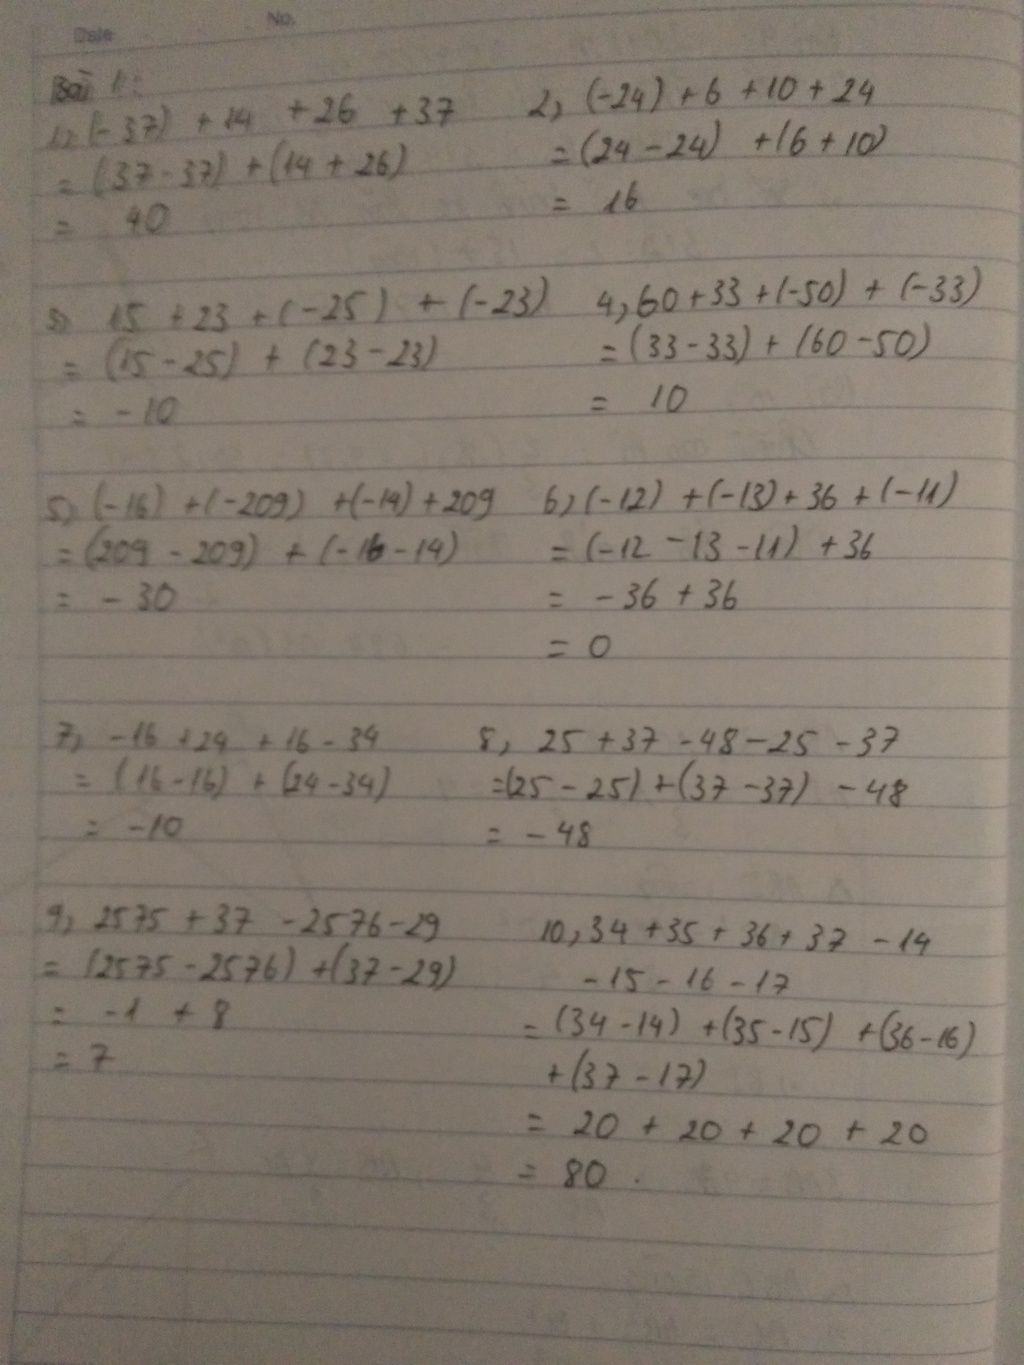 Date No.
Bài 1:
1, (-37) + 14 + 26 + 37
= (37-37) + (14 + 26)
= 40
2, (-24) + 6 + 10 + 24
= (24 - 24) + (6 + 10)
= 16
3, 15 + 23 + (-25) + (-23)
= (15 - 25) + (23 - 23)
= -10
4, 60 + 33 + (-50) + (-33)
= (33 - 33) + (60 - 50)
= 10
5, (-16) + (-209) + (-14) + 209
= (209 - 209) + (-16 - 14)
= -30
6, (-12) + (-13) + 36 + (-11)
= (-12 - 13 - 11) + 36
= -36 + 36
= 0
7, -16 + 24 + 16 - 34
= (16-16) + (24 - 34)
= -10
8, 25 + 37 - 48 - 25 - 37
= (25 - 25) + (37 - 37) - 48
= -48
9, 2575 + 37 - 2576 - 29
= (2575 - 2576) + (37 - 29)
= -1 + 8
= 7
10, 34 + 35 + 36 + 37 - 14
- 15 - 16 - 17
= (34 - 14) + (35 - 15) + (36 - 16)
+ (37 - 17)
= 20 + 20 + 20 + 20
= 80.